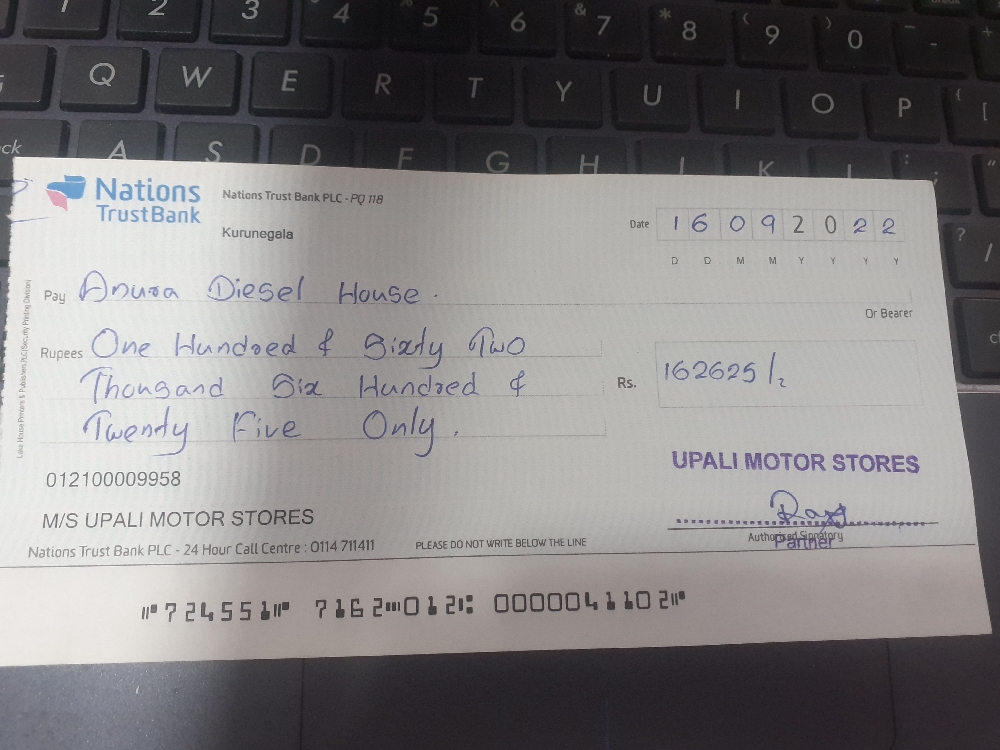 1 2 3 4 5 6 & 7 * 8 ( 9 ) 0 -
Q W E R T Y U I O P { [
ck A S D F G H J K L : ;
? /
Nations
TrustBank
Nations Trust Bank PLC - PQ 118
Kurunegala
Date 1 6 0 9 2 0 2 2
D D M M Y Y Y Y
Pay Anura Diesel House.
Or Bearer
Rupees One Hundred & Sixty Two
Thousand Six Hundred &
Twendy Five Only.
Rs. 162625/=
Lake House Printers & Publishers PLC (Security Printing Division)
012100009958
UPALI MOTOR STORES
M/S UPALI MOTOR STORES
Authorised Signatory
Partner
Nations Trust Bank PLC - 24 Hour Call Centre : 0114 711411
PLEASE DO NOT WRITE BELOW THE LINE
⑈724551⑈ 7162⑉012⑆ 0000041102⑈